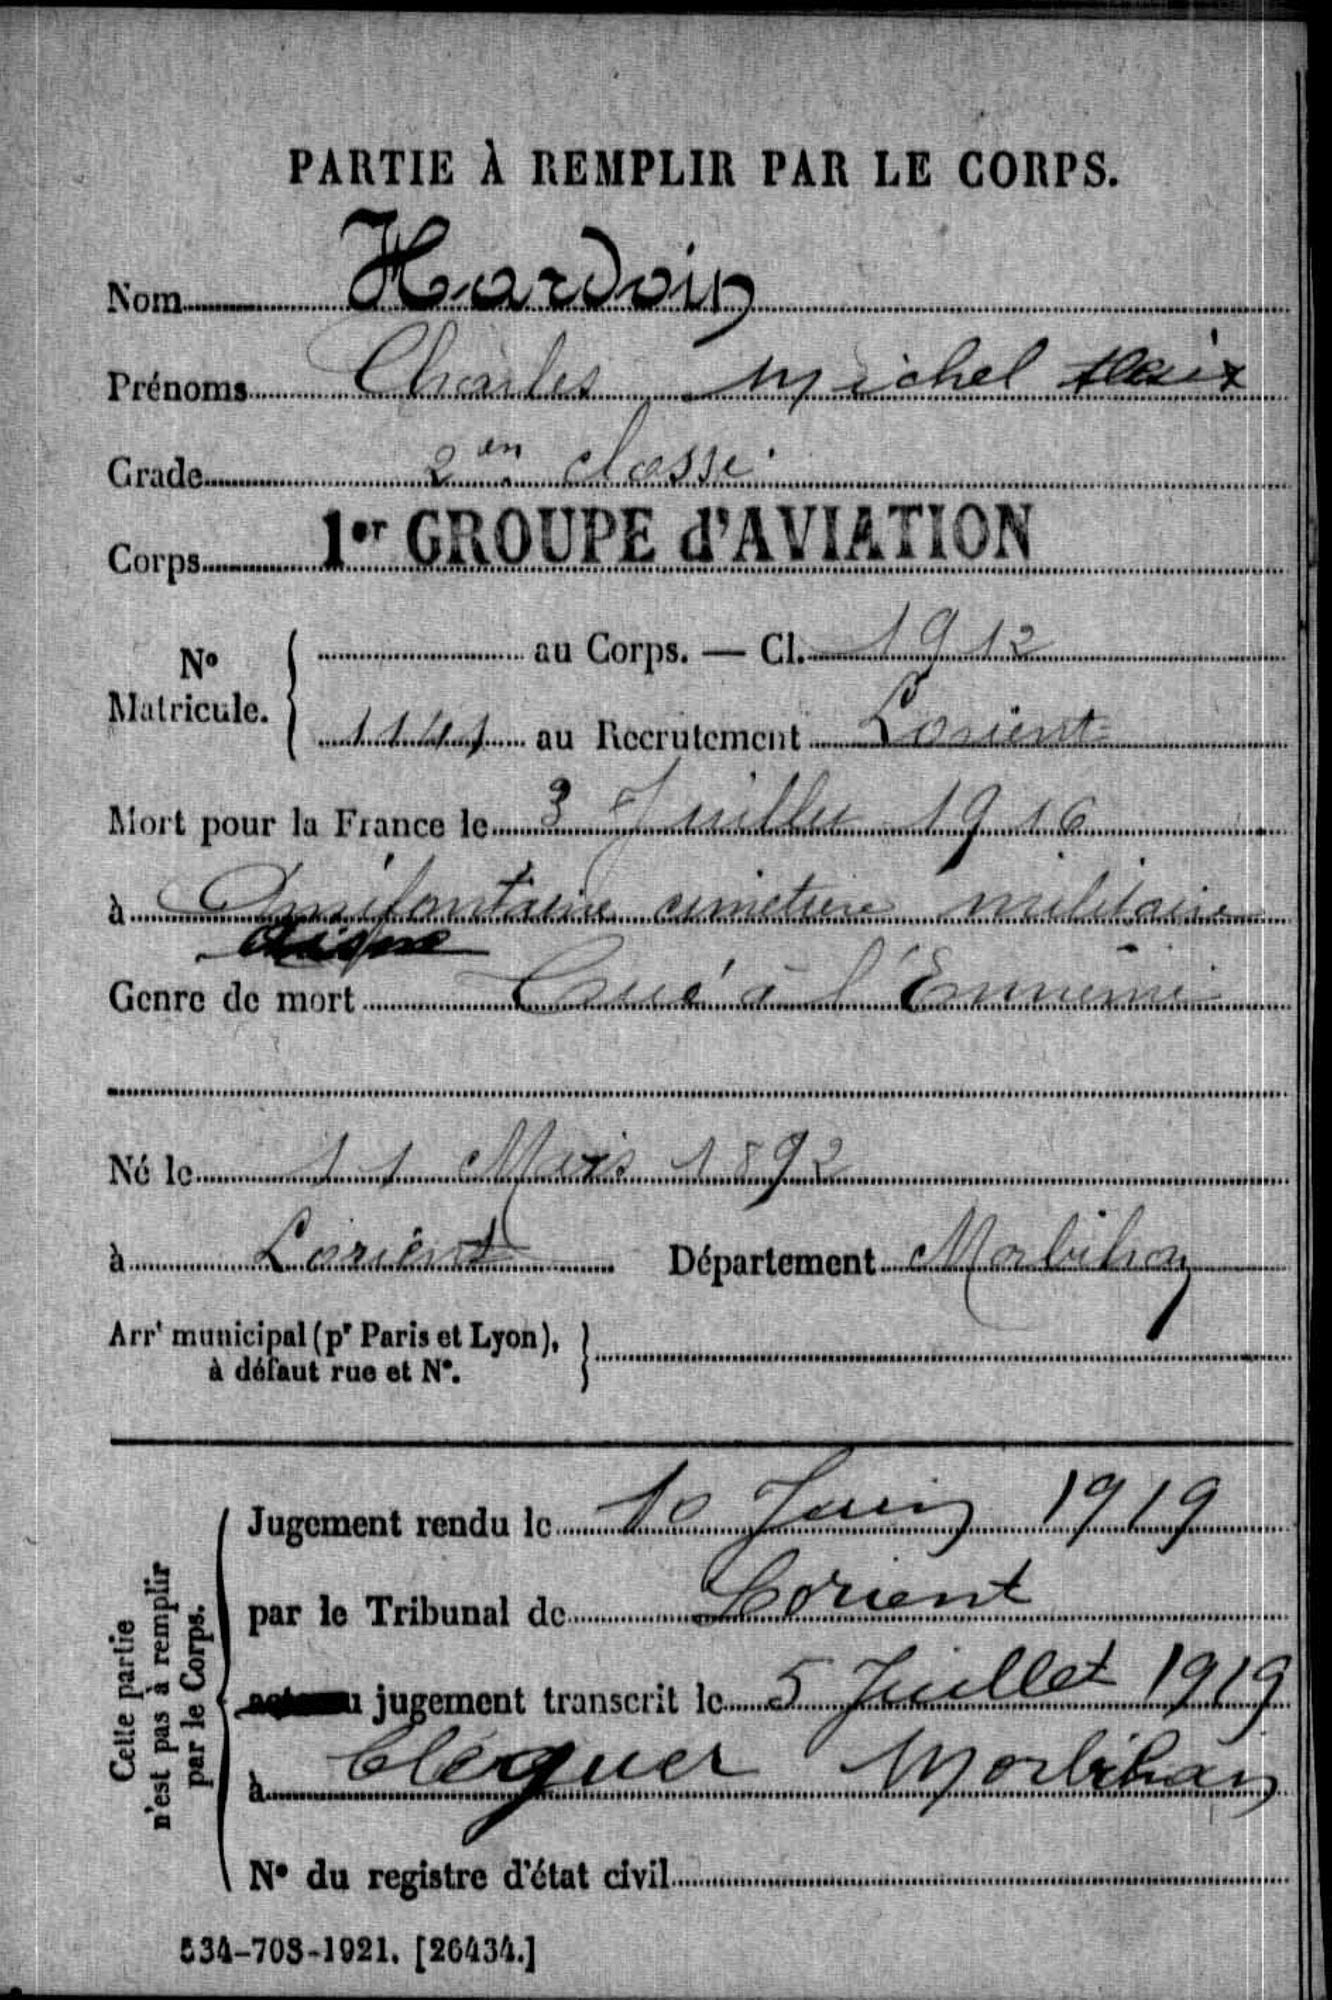 PARTIE À REMPLIR PAR LE CORPS.
Nom Hardoin
Prénoms Charles Michel Alexix
Grade 2en classe
Corps 1er GROUPE d'AVIATION
N° Matricule. { au Corps. — Cl. 1912
1141 au Recrutement Lorient
Mort pour la France le 3 Juillet 1916
à cimetiere militaire
Aisne
Genre de mort Tué à l'Ennemi
Né le 11 Mars 1892
à Lorient Département Morbihan
Arrt municipal (pr Paris et Lyon), }
à défaut rue et N°.
Cette partie
n'est pas à remplir
par le Corps.
Jugement rendu le 10 Juin 1919
par le Tribunal de Lorient
jugement transcrit le 5 Juillet 1919
à Cléguer Morbihan
N° du registre d'état civil
534-708-1921. [26434.]